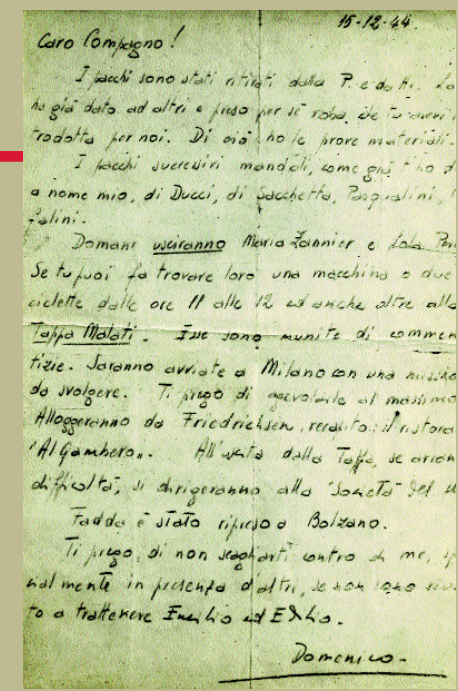 15-12-44
Caro Compagno!
I pacchi sono stati ritirati dalla P. e da Hi. La
ha già dato ad altri e preso per sé roba che tu avevi
trodotta per noi. Di ciò ho le prove materiali.
I pacchi successivi mandali, come già t'ho d
a nome mio, di Ducci, di Sacchetta, Pasqualini,
falini.
Domani usciranno Maria Zannier e Lola
Se tu puoi fa trovare loro una macchina o due
ciclette dalle ore 11 alle 12 ed anche oltre alla
Tappa Malati. Esse sono munite di commen
tizie. Saranno avviate a Milano con una missio
da svolgere. Ti prego di agevolarle al massimo
Alloggeranno da Friedrichsen, recapito: il ristora
"Al Gambero". All'uscita dalla Tappa, se
difficoltà, si dirigeranno alla "Società" del
Fadda è stato ripreso a Bolzano.
Ti prego, di non scagliarti contro di me,
nalmente in presenza d'altri, se non sono
to a trattenere Emilio ed
Domenico-